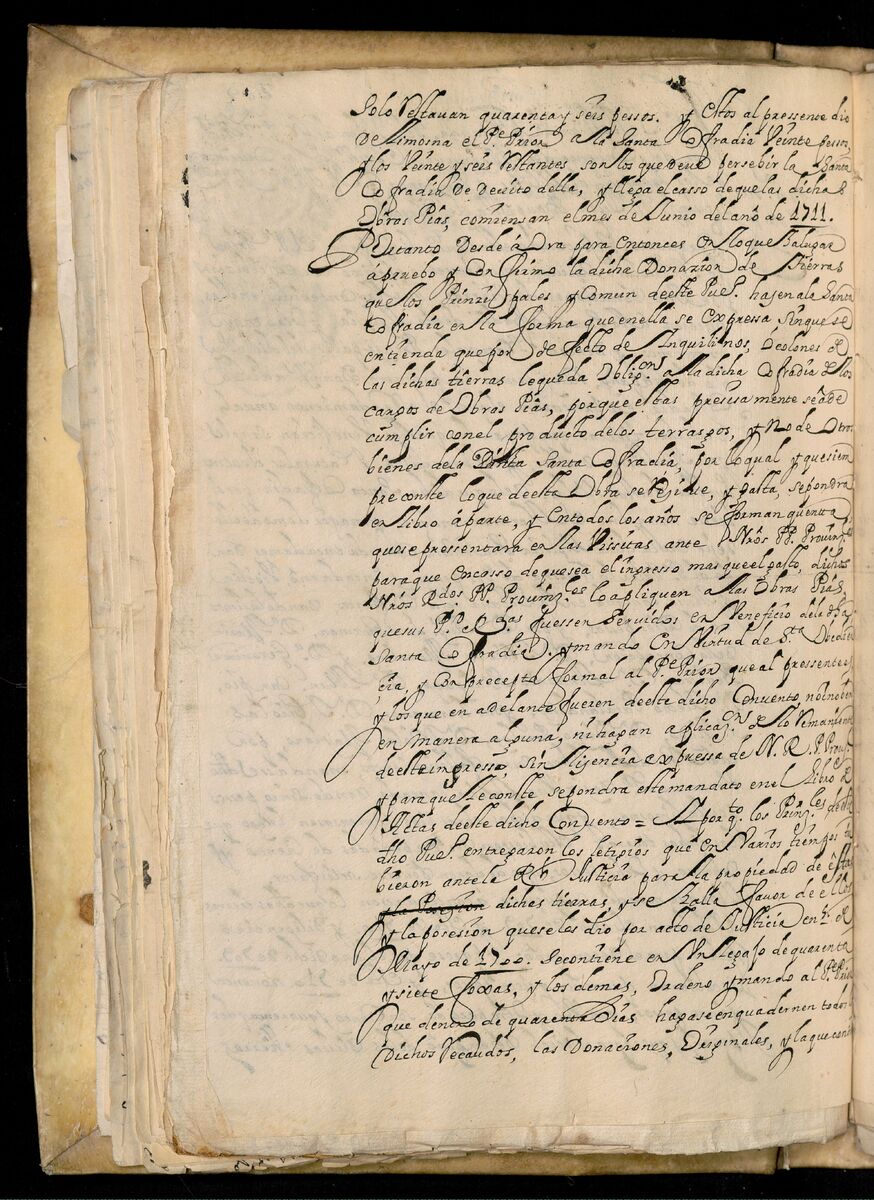 solo restavan quarenta y seis pessos. y estos al pressente dio
de limosna el Pe. Prior a la Santa Cofradia Veinte pessos,
y los Veinte y seis restantes son los que deve persebir la Santa
Cofradia de decito della, y llega el casso de que las dichas
Obras Pias, comiensan el mes de Junio del año de 1711.
Por tanto desde áora para entonces en lo que ha lugar
apruebo y confirmo la dicha Donazion de tierras
que los Prinzipales y Comun de este Puel. hasen a la Santa
Cofradia en la forma que en ella se expressa, sin que se
entienda que por defecto de Inquilinos, o colonos de
las dichas tierras lo queda obligon. a la dicha Cofradia de los
cargos de Obras Pias, porque estas presisamente se á de
cumplir con el producto de los terrasgos, y no de otros
bienes de la Santa Cofradia, por lo qual y que siem
pre conste lo que de esta Obra se rejiese, y gasta, se pondra
en libro áparte, y en todos los años se forman quenta
que se pressentara en las Vissitas ante Nros PP. Provinles
para que en casso de que sea el ingresso mas que el gasto, dichos
Nros Rdos. PP. Provinzles. lo apliquen a las Obras Pias,
que sus P.s Rdas fuessen servidos en Veneficio de la dha
Santa Cofradia. y mando en Virtud de Sta. Obedien
cia, y con precepto formal al Pe. Prior que al pressente es
y los que en adelante fueren de este dicho Convento, no inoben
en manera alguna, ni hagan aplicazons. de lo remaniente
de este ingresso, sin lijencia expressa de N. R. P. Provl.
y para que le conste se pondra este mandato en el libro de
Actas de este dicho Convento = Y por qto. los Prinzles. de este
dho Puel. entregaron los letigios que en Varios tiempos tu
bieron ante la Rl. Justicia para la propiedad de estas
y la Posesion dichas tierras, y se halla favor de ellos
y la posesion que se les dio por acto de Justicia en
Mayo de 1700. se contiene en Un legajo de quarenta
y siete foxas, y los demas, Ordeno y mando al Pe. Prior
que dentro de quarenta dias hagase enquadernen todos
dichos recaudos, las Donaciones, Originales, y la que con